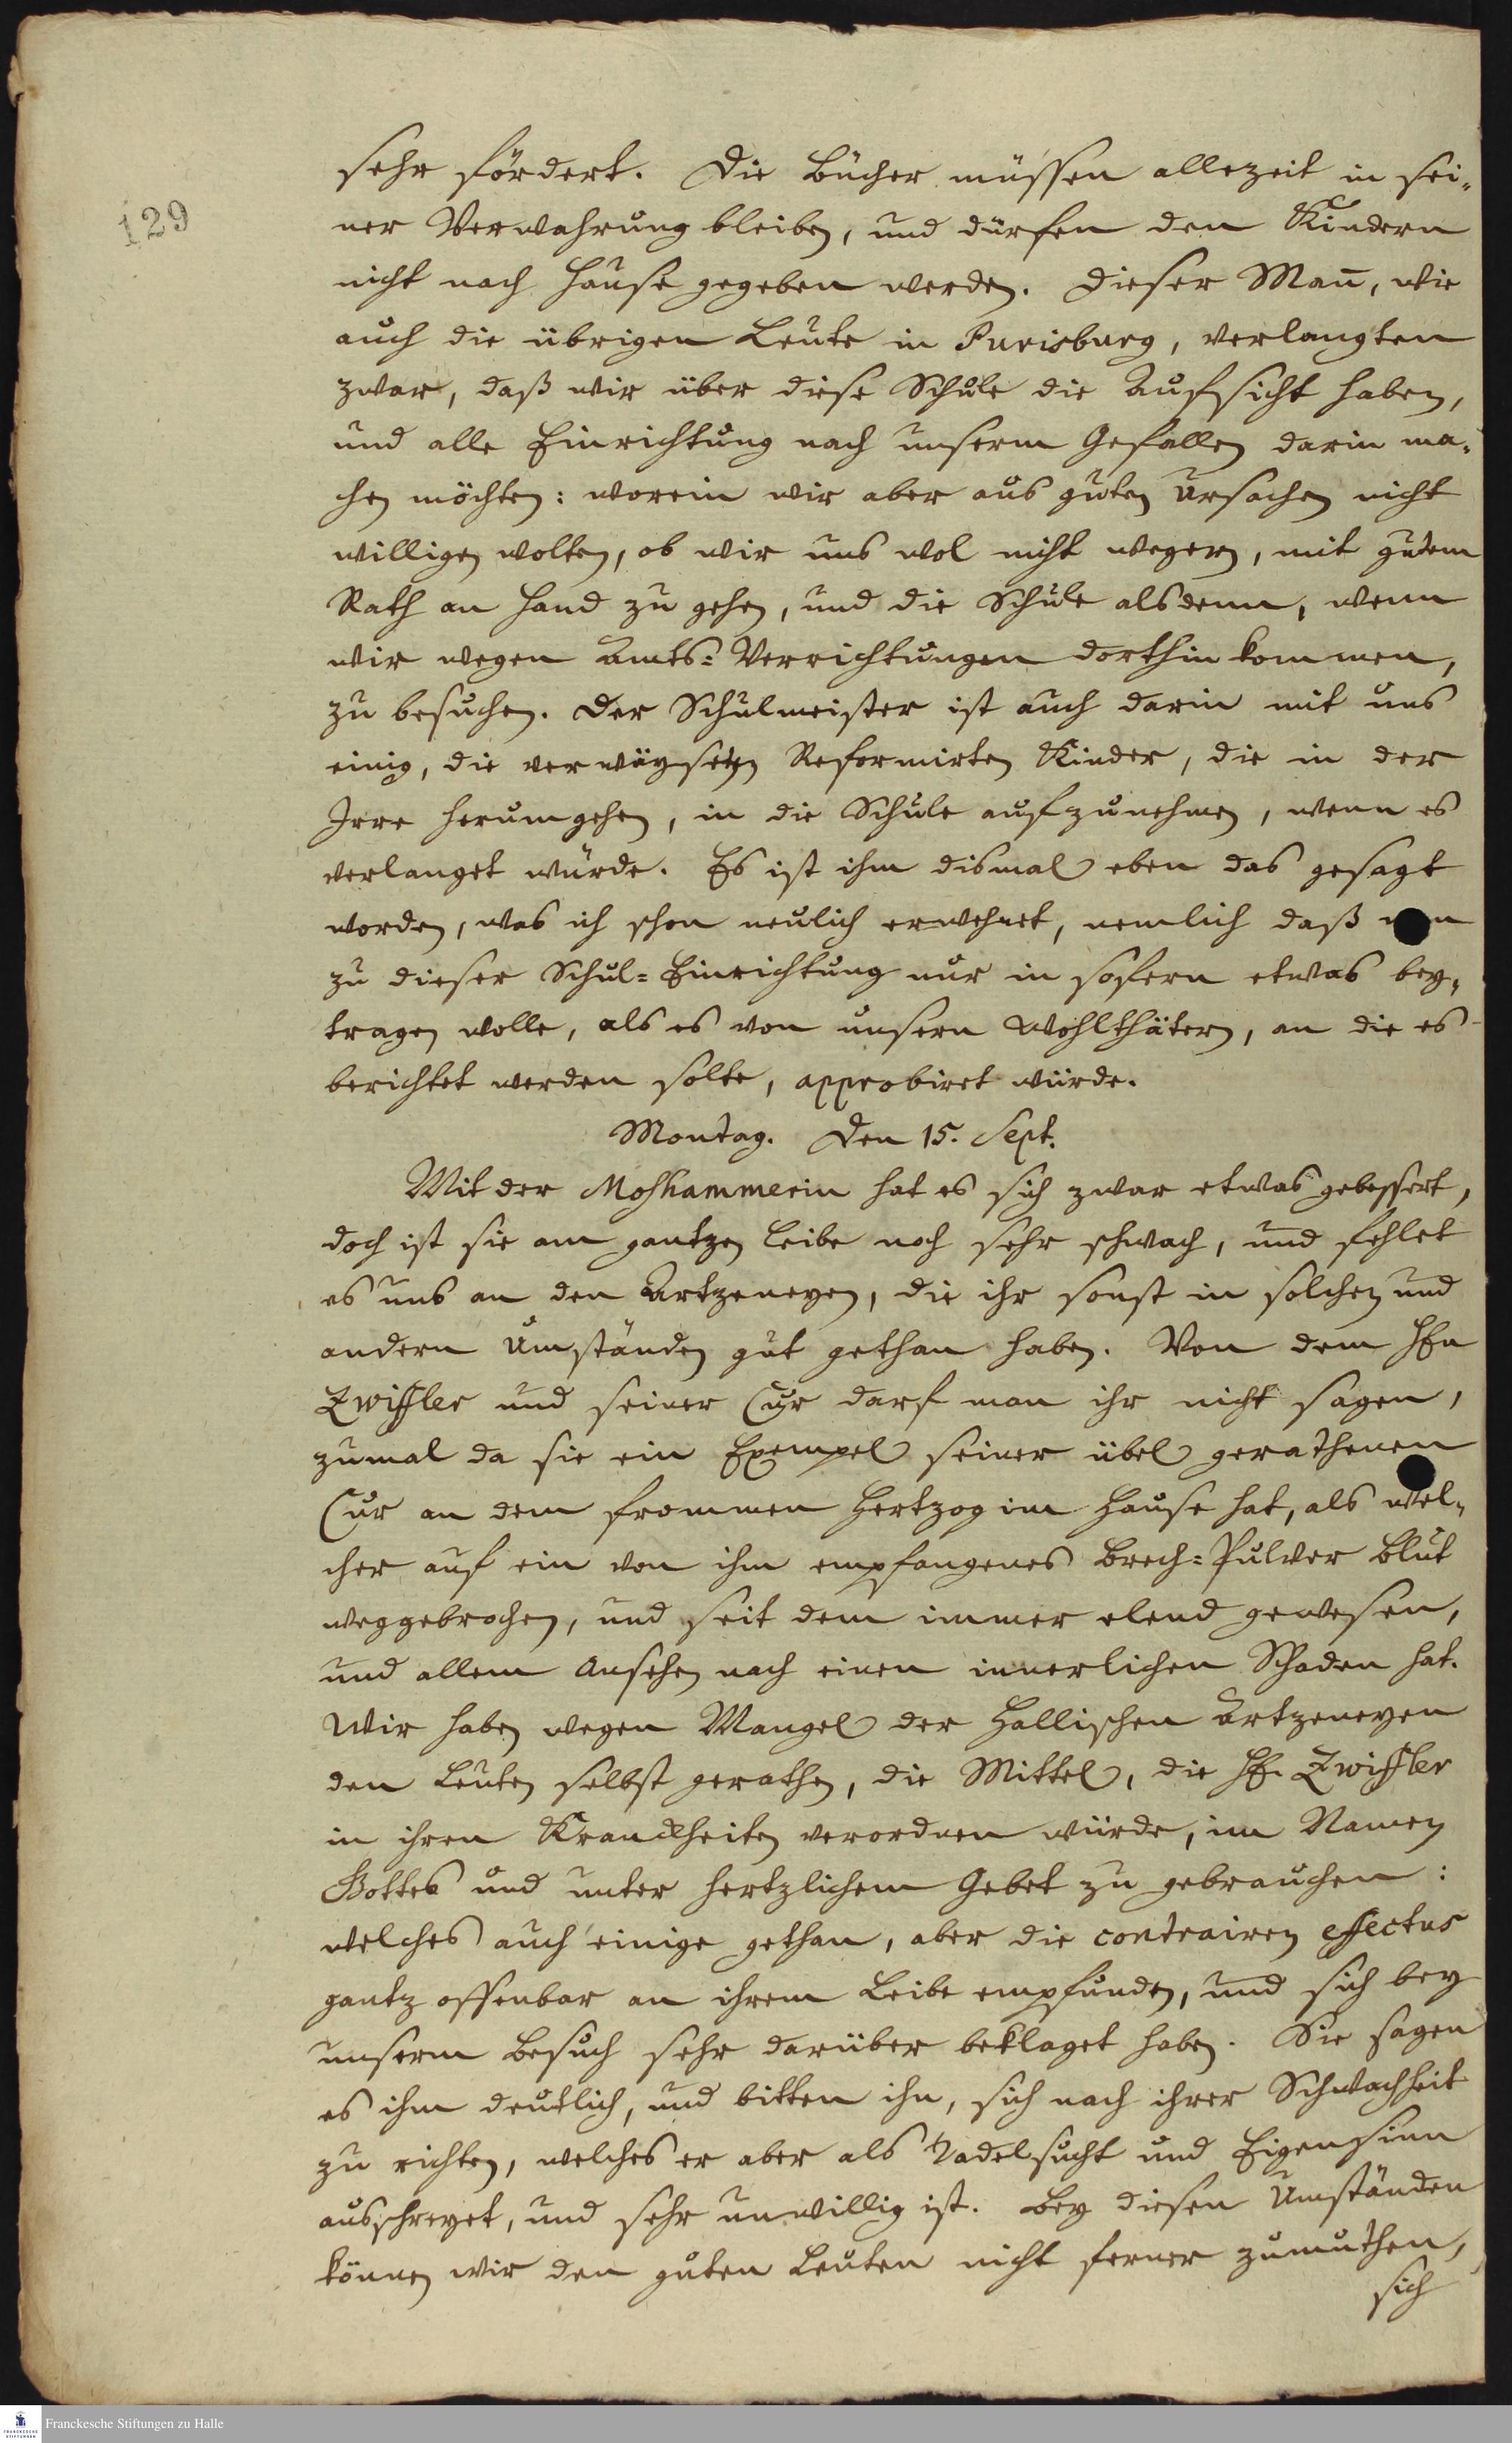 129
sehr fördert. Die Bücher müssen allezeit in sei-
ner Verwahrung bleiben, und dürfen den Kindern
nicht nach Hause gegeben werden. Dieser Man̄, wie
auch die übrigen Leute in Purisburg, verlangten
zwar, daß wir über diese Schule die Aufsicht haben,
und alle Einrichtung nach unserm Gefallen darin ma-
chen möchten: worein wir aber aus guten Ursachen nicht
willigen wolten, ob wir uns wol nicht wegern, mit gutem
Rath an Hand zu gehen, und die Schule alsdenn, wenn
wir wegen Amts-Verrichtungen dorthin kommen,
zu besuchen. Der Schulmeister ist auch darin mit uns
einig, die verwäyseten Reformirten Kinder, die in der
Irre herumgehen, in die Schule aufzunehmen, wenn es
verlanget würde. Es ist ihm dismal eben das gesagt
worden, was ich schon neulich erwehnet, nemlich daß
zu dieser Schul-Einrichtung nur in sofern etwas bey-
tragen wolle, als es von unsern Wohlthätern, an die es
berichtet werden solte, approbiret würde.
Montag. Den 15. Sept.
Mit der Moshammerin hat es sich zwar etwas gebessert,
doch ist sie am gantzen Leibe noch sehr schwach, und fehlet
es uns an den Artzeneyen, die ihr sonst in solchen und
andern Umständen gut gethan haben. Von dem HEn
Zwiffler und seiner Cur darf man ihr nicht sagen,
zumal da sie ein Exempel seiner übel gerathenen
Cur an dem frommen Hertzog im Hause hat, als wel-
cher auf ein von ihm empfangenes Brech-Pulver Blut
weggebrochen, und seit dem immer elend gewesen,
und allem Ansehen nach einen innerlichen Schaden hat.
Wir haben wegen Mangel der Hallischen Artzeneyen
den Leuten selbst gerathen, die Mittel, die HE. Zwiffler
in ihren Kranckheiten verordnen würde, im Namen
Gottes und unter hertzlichem Gebet zu gebrauchen:
welches auch einige gethan, aber die contrairen effectus
gantz offenbar an ihrem Leibe empfunden, und sich bey
unserm Besuch sehr darüber beklaget haben. Sie sagen
es ihm deutlich, und bitten ihn, sich nach ihrer Schwachheit
zu richten, welches er aber als Tadelsucht und Eigensinn
ausschreyet, und sehr unwillig ist. Bey diesen Umständen
können wir den guten Leuten nicht ferner zumuthen,
sich
Franckesche Stiftungen zu Halle